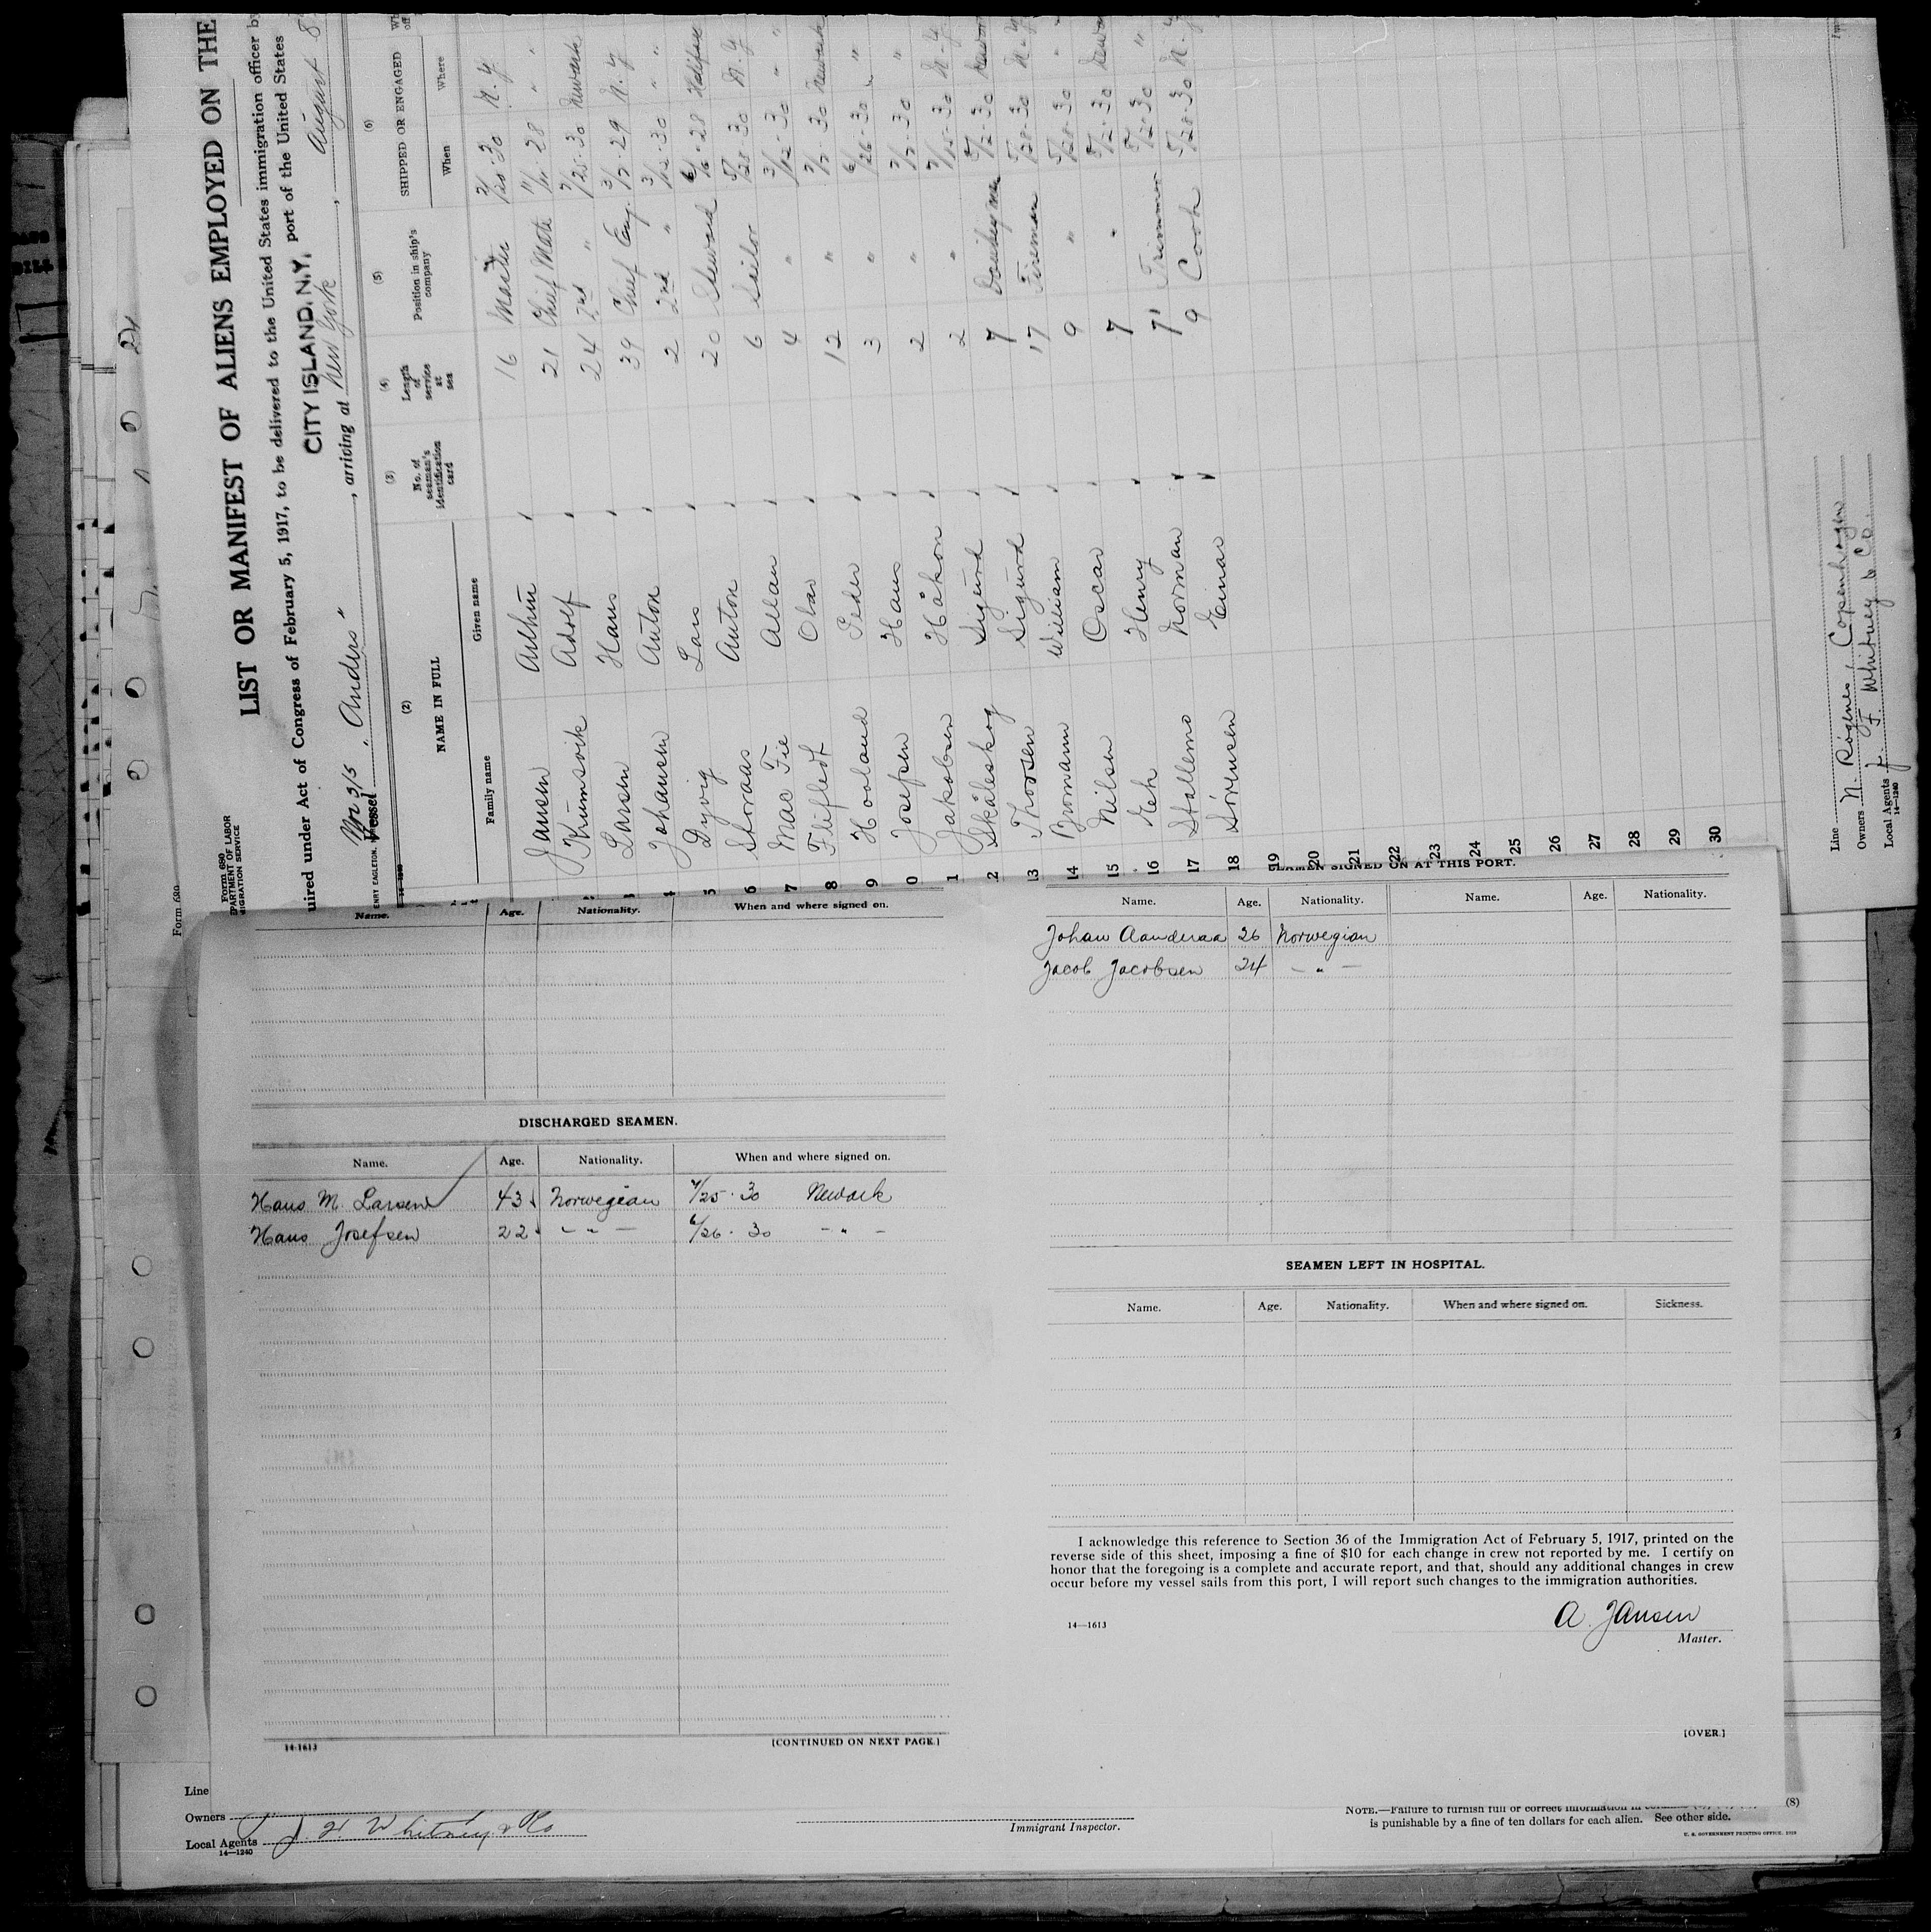 Form 680
DEPARTMENT OF LABOR
IMMIGRATION SERVICE
LIST OR MANIFEST OF ALIENS EMPLOYED ON THE
uired under Act of Congress of February 5, 1917, to be delivered to the United States immigration officer by
CITY ISLAND, N.Y. port of the United States
Vessel "Anders", arriving at New York, August 8
(2) (3) (4) (5) (6)
NAME IN FULL
No. of seaman's identification card
Length of service at sea
Position in ship's company
SHIPPED OR ENGAGED
Family name Given name When Where
Jansen Arthur 16 Master 7/25-30 N.Y.
Krumsvik Adolf 21 Chief Mate 28 "
Larsen Hans 24 2nd " 7/25-30 Newark
Johansen Anton 39 Chief Eng. 3/7-29 N.Y.
5 Dyvig Lars 2 2nd " 3/12-30 "
6 Storaas Anton 20 Steward 28 Halifax
7 Mac Fie Allan 6 Sailor 5/28-30 N.Y.
8 Fliflet Olav 4 " 3/12-30 "
9 Hooland Peder 12 " 3/7-30 Newark
0 Josefsen Hans 3 " 6/26-30 "
1 Jakobsen Håkon 2 " 3/7-30 "
2 Skåleskog Sigurd 2 " 7/15-30 N.Y.
13 Thorsen Sigurd 7 Donkeyman 5/12-30 Newark
14 Bromann William 17 Fireman 5/28-30 N.Y.
15 Nilsen Oscar 9 " 5/28-30 "
16 Henry 7 " 5/12-30 Newark
17 Stallemo Norman 7 Trimmer 5/12-30 "
18 Sørensen Einar 9 Cook 5/28-30 N.Y.
19
20
21
22
23
24
25
26
27
28
29
30
Line
Owners N. Røgenes, Copenhagen
Local Agents J. F. Whitney & Co.
14—1240
Name. Age. Nationality. When and where signed on.
DISCHARGED SEAMEN.
Name. Age. Nationality. When and where signed on.
Hans M. Larsen 43 Norwegian 7/25-30 Newark
Hans Josefsen 22 - " - 6/26-30 - " -
14-1613
[CONTINUED ON NEXT PAGE.]
SEAMEN SIGNED ON AT THIS PORT.
Name. Age. Nationality. Name. Age. Nationality.
Johan Aanderaa 26 Norwegian
Jacob Jacobsen 24 - " -
SEAMEN LEFT IN HOSPITAL.
Name. Age. Nationality. When and where signed on. Sickness.
I acknowledge this reference to Section 36 of the Immigration Act of February 5, 1917, printed on the
reverse side of this sheet, imposing a fine of $10 for each change in crew not reported by me. I certify on
honor that the foregoing is a complete and accurate report, and that, should any additional changes in crew
occur before my vessel sails from this port, I will report such changes to the immigration authorities.
A. Jansen
14—1613
Master.
[OVER.]
Line
Owners
Local Agents J. F. Whitney & Co
14—1240
Immigrant Inspector.
NOTE.—Failure to furnish full or correct information in
is punishable by a fine of ten dollars for each alien. See other side.
(8)
U. S. GOVERNMENT PRINTING OFFICE